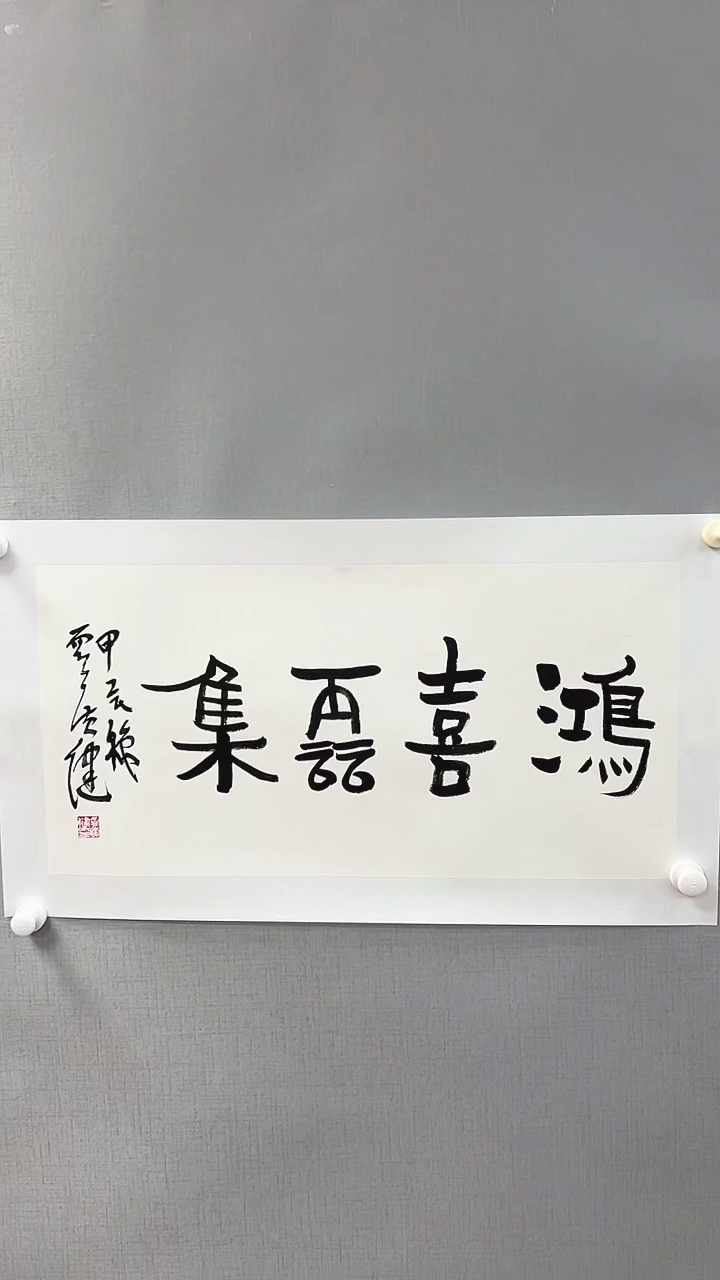 鴻喜雲集
甲辰